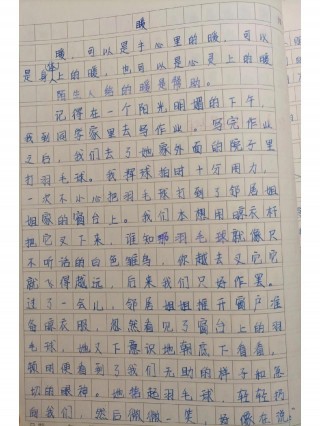 暖
暖，可以是手心里的暖，可以
是身(体)上的暖，也可以是心灵上的暖
陌生人给的暖是赞的。
记得在一个阳光明媚的下午，
我到同学家里去写作业。写完作业
之后，我们去了她家外面的院子里
打羽毛球。我挥球拍时十分用力，
一次不小心把羽毛球打到了邻居姐
姐家的窗台上。我们本想用晾衣杆
把它叉下来，谁知那羽毛球就像只
不听话的白色雏鸟，你越去叉它它
就飞得越远，后来我们只好作罢。
过了一会儿，邻居姐姐推开窗户准
备晾衣服，忽然看见了窗台上的羽
毛球，她又下意识地朝底下看看，
顿时便看到了我们无助的样子和急
切的眼神。她拾起羽毛球，轻轻扔
向我们，然后微微一笑，好像在说：